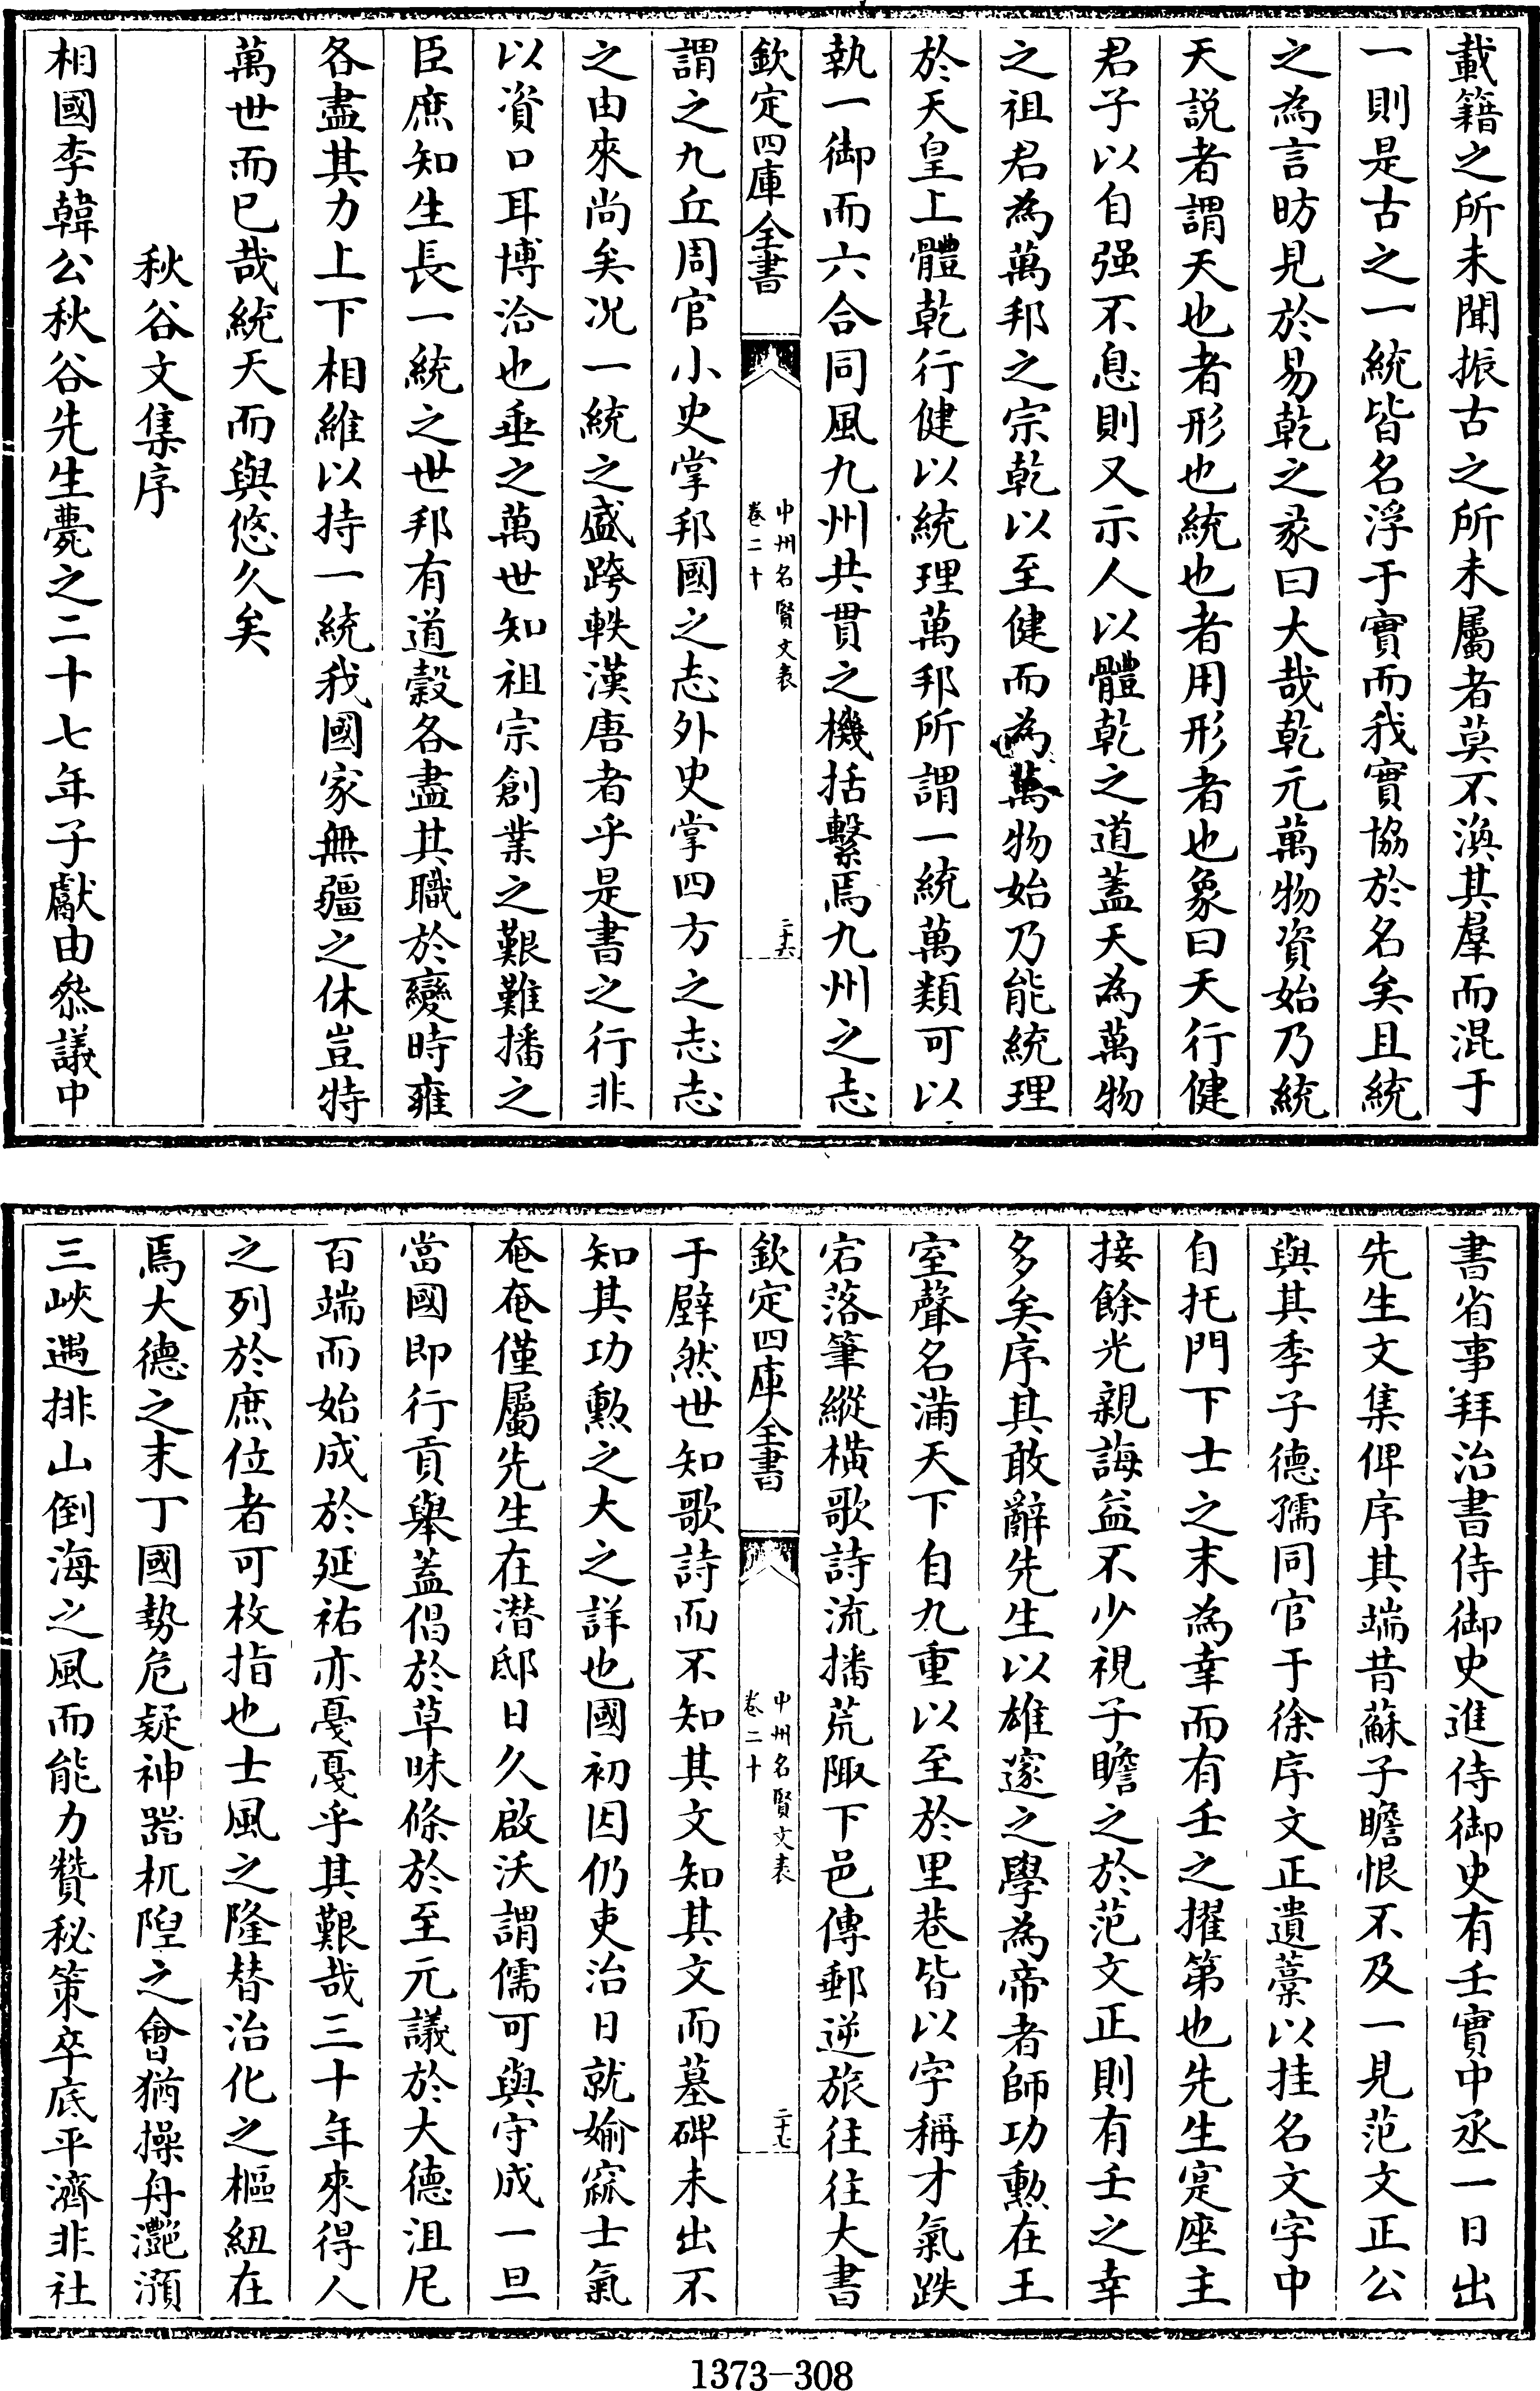 載籍之所未聞振古之所未屬者莫不渙其羣而混于
一則是古之一統皆名浮于實而我實協於名矣且統
之為言昉見於易乾之彖曰大哉乾元萬物資始乃統
天説者謂天也者形也統也者用形者也象曰天行健
君子以自强不息則又示人以體乾之道蓋天為萬物
之祖君為萬邦之宗乾以至健而為萬物始乃能統理
於天皇上體乾行健以統理萬邦所謂一統萬類可以
執一御而六合同風九州共貫之機括繫焉九州之志
欽定四庫全書
中州名賢文表
卷二十
二十六
謂之九丘周官小史掌邦國之志外史掌四方之志志
之由來尚矣况一統之盛跨軼漢唐者乎是書之行非
以資口耳博洽也垂之萬世知祖宗創業之艱難播之
臣庶知生長一統之世邦有道穀各盡其職於變時雍
各盡其力上下相維以持一統我國家無疆之休豈特
萬世而已哉統天而與悠久矣
秋谷文集序
相國李韓公秋谷先生薨之二十七年子獻由叅議中
書省事拜治書侍御史進侍御史有壬實中丞一日出
先生文集俾序其端昔蘇子瞻恨不及一見范文正公
與其季子德孺同官于徐序文正遺藁以挂名文字中
自托門下士之末為幸而有壬之擢第也先生寔座主
接餘光親誨益不少視子瞻之於范文正則有壬之幸
多矣序其敢辭先生以雄邃之學為帝者師功勲在王
室聲名滿天下自九重以至於里巷皆以字稱才氣跌
宕落筆縱橫歌詩流播荒陬下邑傳郵逆旅往往大書
欽定四庫全書
中州名賢文表
卷二十
二十七
于壁然世知歌詩而不知其文知其文而墓碑未出不
知其功勲之大之詳也國初因仍吏治日就婾窳士氣
奄奄僅屬先生在潛邸日久啟沃謂儒可與守成一旦
當國即行貢舉蓋倡於草昧條於至元議於大德沮尼
百端而始成於延祐亦戛戛乎其艱哉三十年來得人
之列於庶位者可枚指也士風之隆替治化之樞紐在
焉大德之末丁國勢危疑神噐杌隉之會猶操舟灧澦
三峽遇排山倒海之風而能力贊秘策卒底平濟非社
1373-308